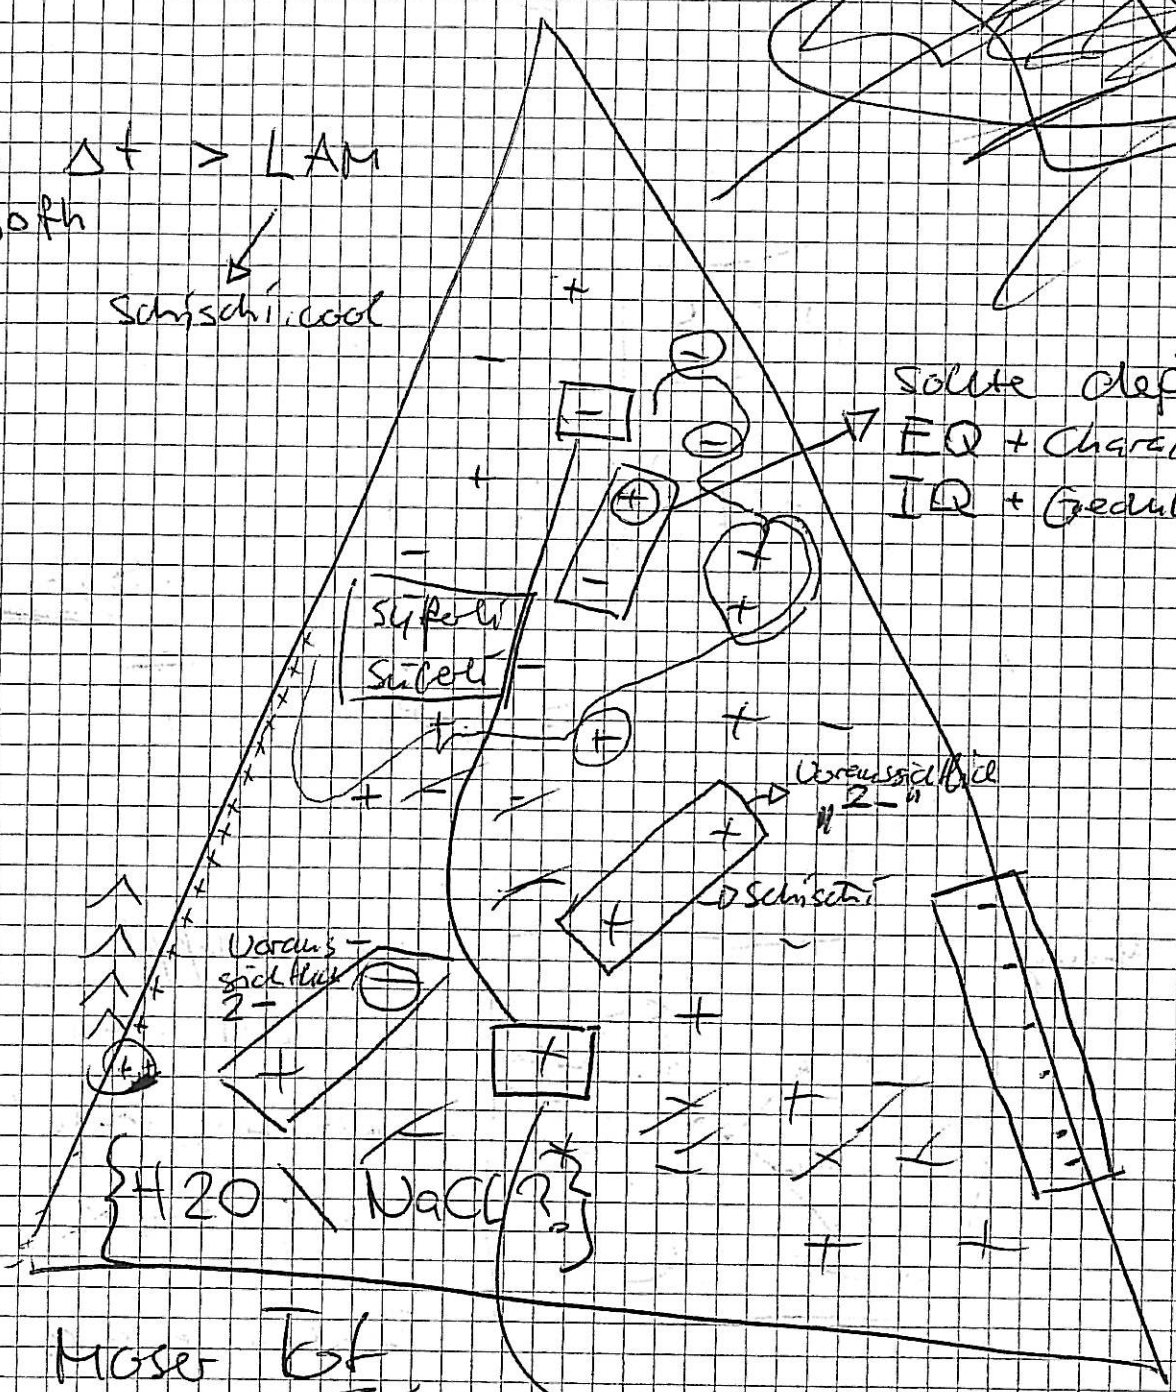 Δt > LAM
Schischi.cool
sollte def
EQ + Charac
IQ + Gedul
süferli
süferli
Voraussichtlich
"2-"
Schischi
Voraus-
sichtlich
2-
{H2O \ NaCl?*}
Moser Tot